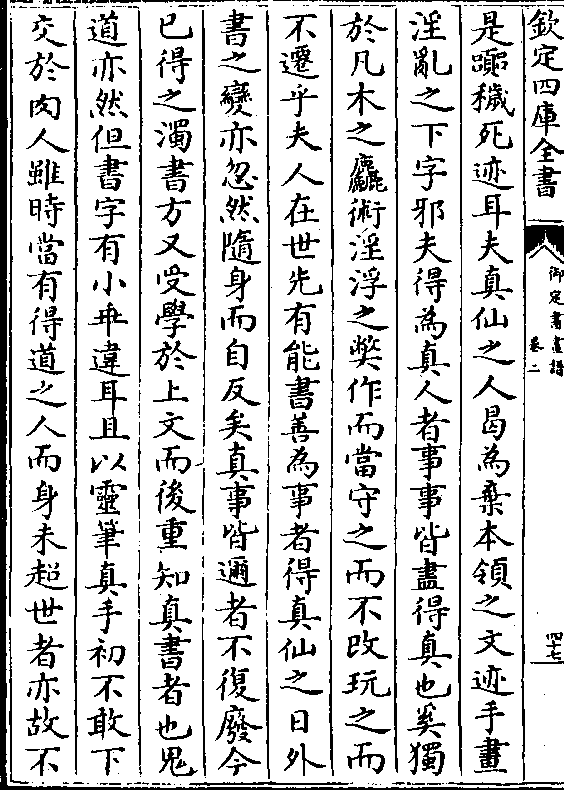 欽定四庫全書
御定書畫譜
卷二
四十七
是躢穢死迹耳夫真仙之人曷為棄本領之文迹手畫
淫亂之下字邪夫得為真人者事事皆盡得真也奚獨
於凡木之麤術淫浮之獘作而當守之而不改玩之而
不遷乎夫人在世先有能書善為事者得真仙之日外
書之變亦忽然隨身而自反矣真事皆邇者不復廢今
已得之濁書方又受學於上文而後重知真書者也鬼
道亦然但書字有小乖違耳且以靈筆真手初不敢下
交於肉人雖時當有得道之人而身未超世者亦故不